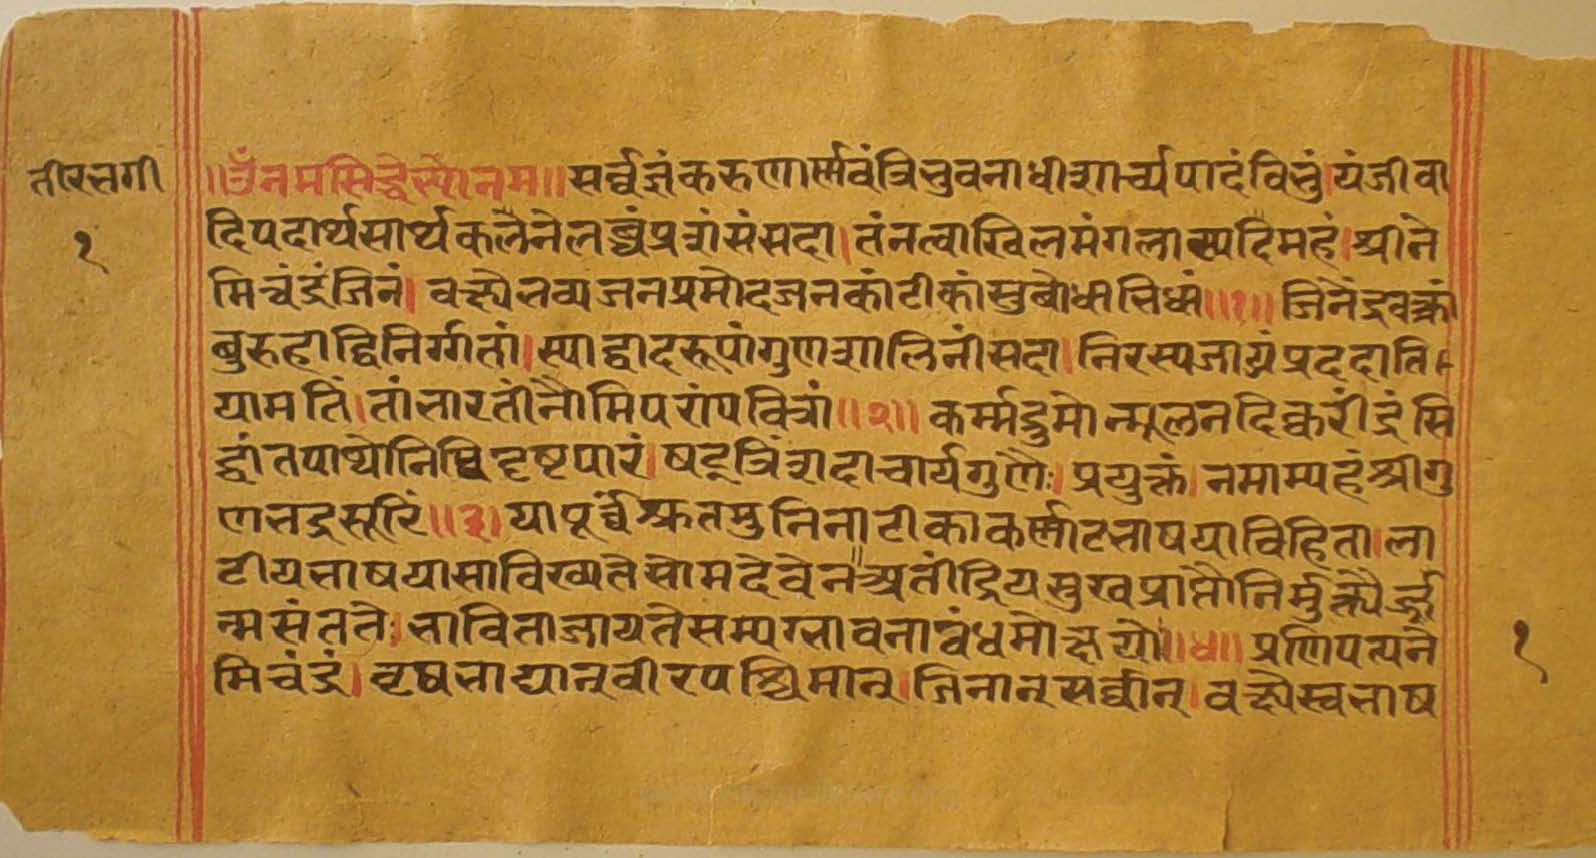 तीरत्नगी
१
॥ॐनमसिद्धेभ्योनम॥ सर्व्वज्ञंकरुणार्णवंत्रिभुवनाधीशार्च्यपादंविभुं।यंजीवा
दिपदार्थसार्थकलनेलब्धंप्रशंसंसदा।तंनत्वाखिलमंगलास्पदमिहं।श्रीने
मिचंद्रंजिनं। वक्ष्येभव्यजनप्रमोदजनकांटीकांसुबोधाभिधां॥१॥ जिनेंद्रवक्त्रां
बुरुहाद्विनिर्ग्गतां।स्याद्वादरूपांगुणशालिनींसदा।निरस्यजाड्यंप्रददाति
यामतिं।तांभारतींनौमिपरांपवित्रां॥२॥ कर्म्मद्रुमोन्मूलनदिक्करींद्रं सि
द्धांतपाथोनिधिदृष्टपारं।षट्त्रिंशदाचार्यगुणैः। प्रयुक्तं।नमाम्यहंश्रीगु
णभद्रसूरिं॥३।यापूर्व्वंश्रुतमुनिनाटीकाकर्णाटभाषयाविहिता।ला
टीयभाषयासाविरच्यतेसोमदेवेन॥अतींद्रियसुखप्राप्तौनिर्मुक्त्यैर्ज
न्मसंतते।भाविताजायतेसम्यग्भावनाबंधमोक्षयो॥४॥ प्रणिपत्यने
मिचंद्रं।वृषभाद्यान्वीरपश्चिमान्।जिनान्सर्व्वान्।वक्ष्येस्वभाष
१